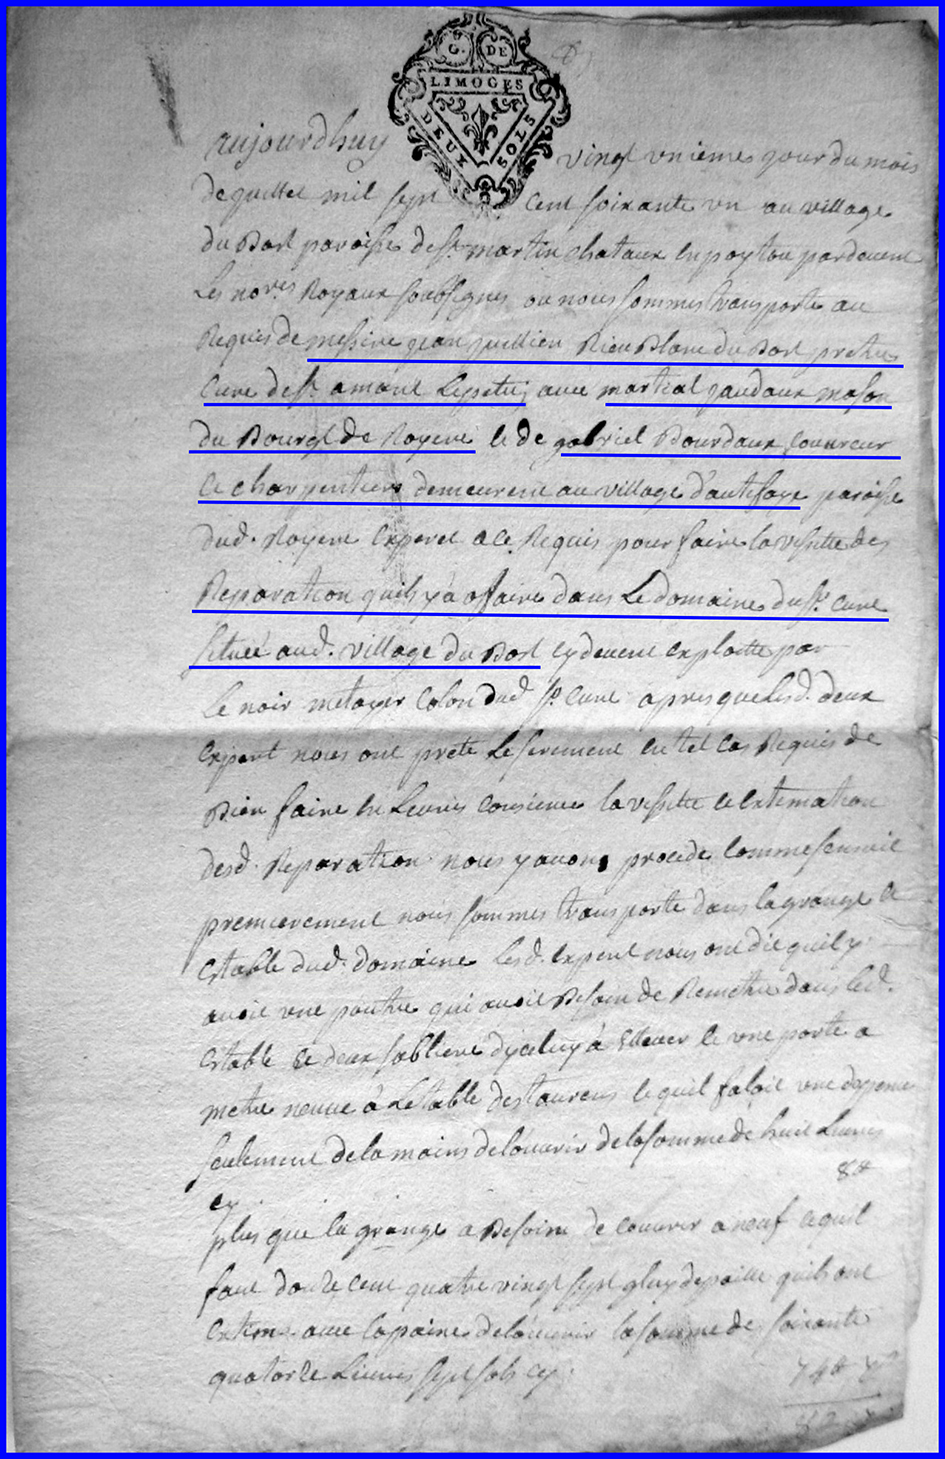 G. DE
LIMOGES
DEUX SOLS
aujourdhuy vingt vnieme jour du mois
de juillet mil sept cent soixante vn au village
du Bost paroisse de st martin chataux en poytou pardevent
Les nores Royaux soubsignes ou nous sommes transporte au
Requis de messire jean jullien Rieublanc du Bost pretre
Cure de st amant Lepetit avec martial jaudoux mason
du Bourgt de Royere et de gabriel Bourdaux couvreur
et charpentiers demeurent au village d'autefaye paroisse
dud. Royere expert a ce Requis pour faire la visitte des
Repparation quils y a affaire dans Le domaine du sr. cure
situee aud. village du Bost cydevent exploitte par
Le noir metayer colon dud sr. cure apres que lesd. deux
expert nous ont prete Le serement en tel cas Requis de
Bien faire en Leurs consience la visitte et extimation
desd. Reparation nous y avons procede comme sensuit
premierement nous sommes transporte dans la grange et
estable dud. domaine Lesd. expert nous ont dit quil y
avoit une pouttre qui avoit Besoin de Remettre dans led.
estable et deux sabliere dyceluy à Ellever et vne porte a
metre neuve à Létable des taureus et quil faloit vne depense
seulement de la mains de louvrir de la somme de huit Livres
cy 8#
plus que la grange a Besoins de couvrir a neuf et quil
faut douze cent quatre vingt sept gluy de paille quils ont
extime avec la paine de le couvrir la somme de soixante
quatorze Livres sept sols cy 74# 7s
82